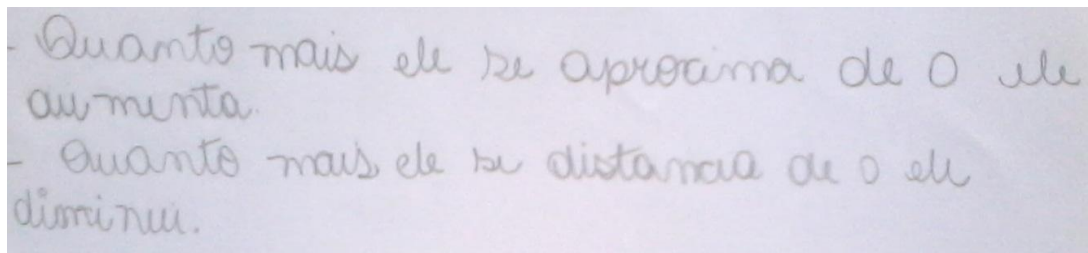 - Quanto mais ele se aproxima de 0 ele
aumenta.
- Quanto mais ele se distancia de 0 ele
diminui.